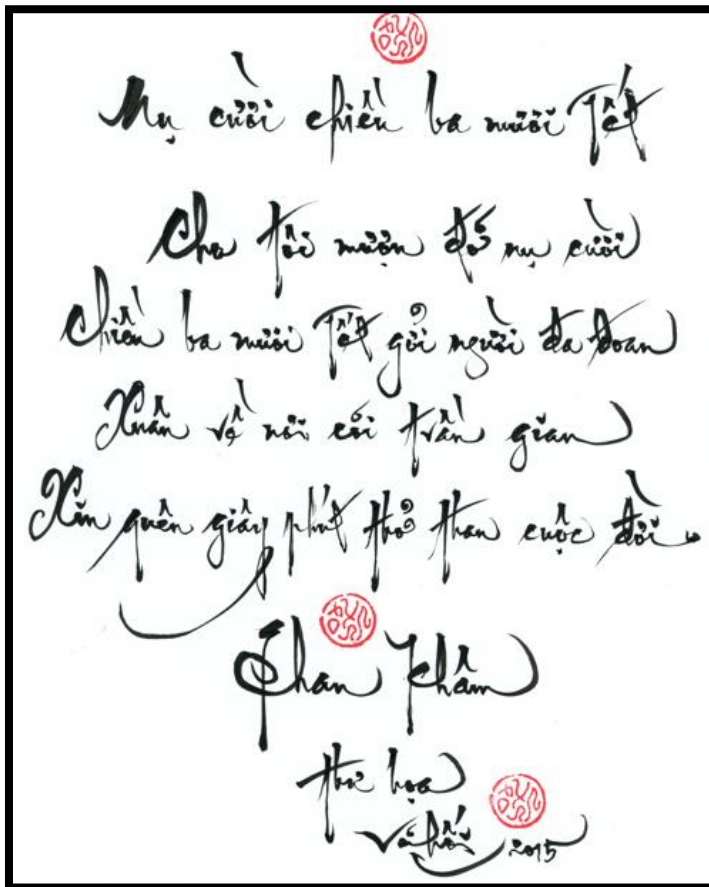 Nụ cười chiều ba mươi Tết
Cho tôi mượn đỡ nụ cười
Chiều ba mươi Tết gởi người đa đoan
Xuân về nơi cõi trần gian
Xin quên giây phút thở than cuộc đời.
Phan Thâm
thư họa
Vũ Hối 2015